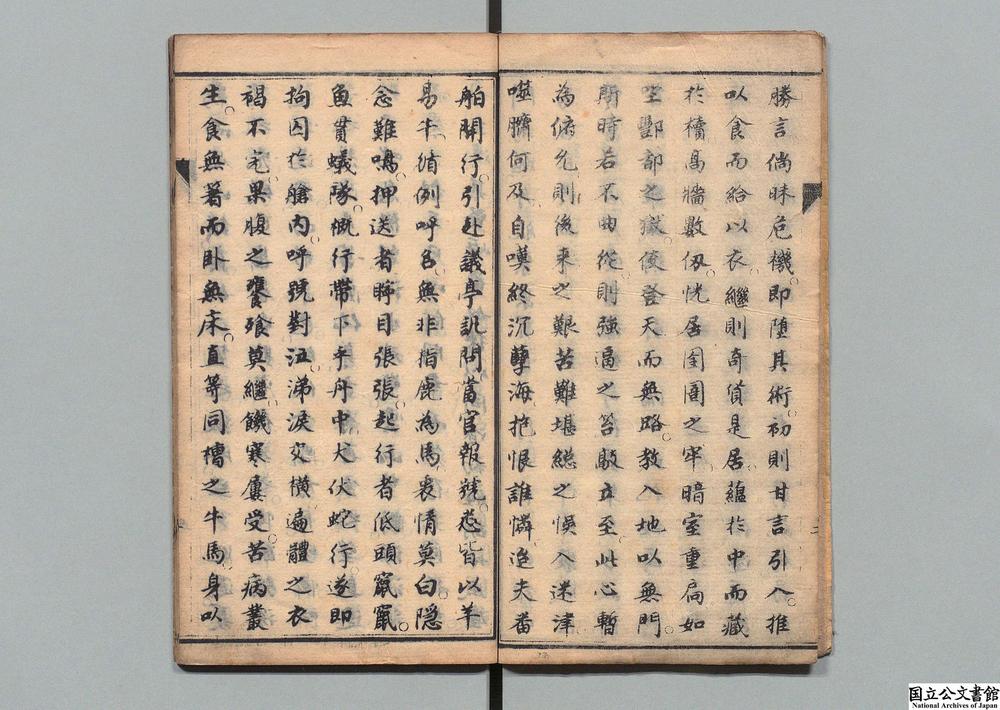 勝言倘昧危機即堕其術初則甘言引入推
以食而給以衣繼則奇貨是居蘊於中而藏
於櫝高牆數仭恍居囹圄之牢暗室重扃如
坐酆都之獄使登天而無路教入地以無門
斯時若不曲從則強逼之笞毆立至此心暫
為俯允則後来之艱苦難堪緫之悞入迷津
噬臍何及自嘆終沉孽海抱恨誰憐迨夫番
舶開行引赴議亭訊問當官報號忍皆以羊
易牛循例呼名無非指鹿為馬衷情莫白隠
念難鳴押送者睜目張張起行者低頭竄竄
魚貫蟻隊概行帶下乎舟中犬伏蛇行遂即
拘囚扵艙內呼號對泣涕淚交橫遍體之衣
褐不完果腹之饔飱莫繼饑寒屢受苦病叢
生食無著而卧無床直等同槽之牛馬身以
国立公文書館
National Archives of Japan